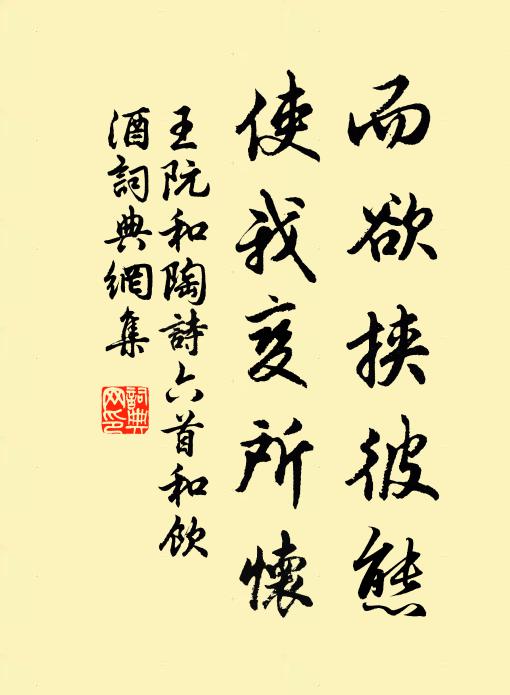 而欲挟彼態
使我变所懷
王阮和陶詩六首和飲
酒詞典網集
詞典
网印